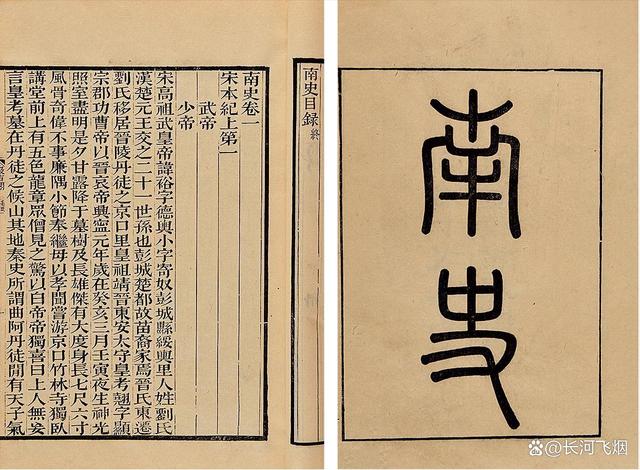 南史
南史目録 終
南史卷一
宋本紀上第一
武帝
少帝
宋高祖武皇帝諱裕字德輿小字寄奴彭城縣綏輿里人姓劉氏
漢楚元王交之二十一世孫也彭城楚都故苗裔家焉晉氏東遷
劉氏移居晉陵丹徒之京口里皇祖靖晉東安太守皇考翹字顯
宗郡功曹帝以晉哀帝興寧元年歲在癸亥三月壬寅夜生神光
照室盡明是夕甘露降于墓樹及長雄傑有大度身長七尺六寸
風骨奇偉不事廉隅小節奉繼母以孝聞嘗游京口竹林寺獨臥
講堂前上有五色龍章眾僧見之驚以白帝帝獨喜曰上人無妄
言皇考墓在丹徒之候山其地秦史所謂曲阿丹徒間有天子氣
长河飞烟